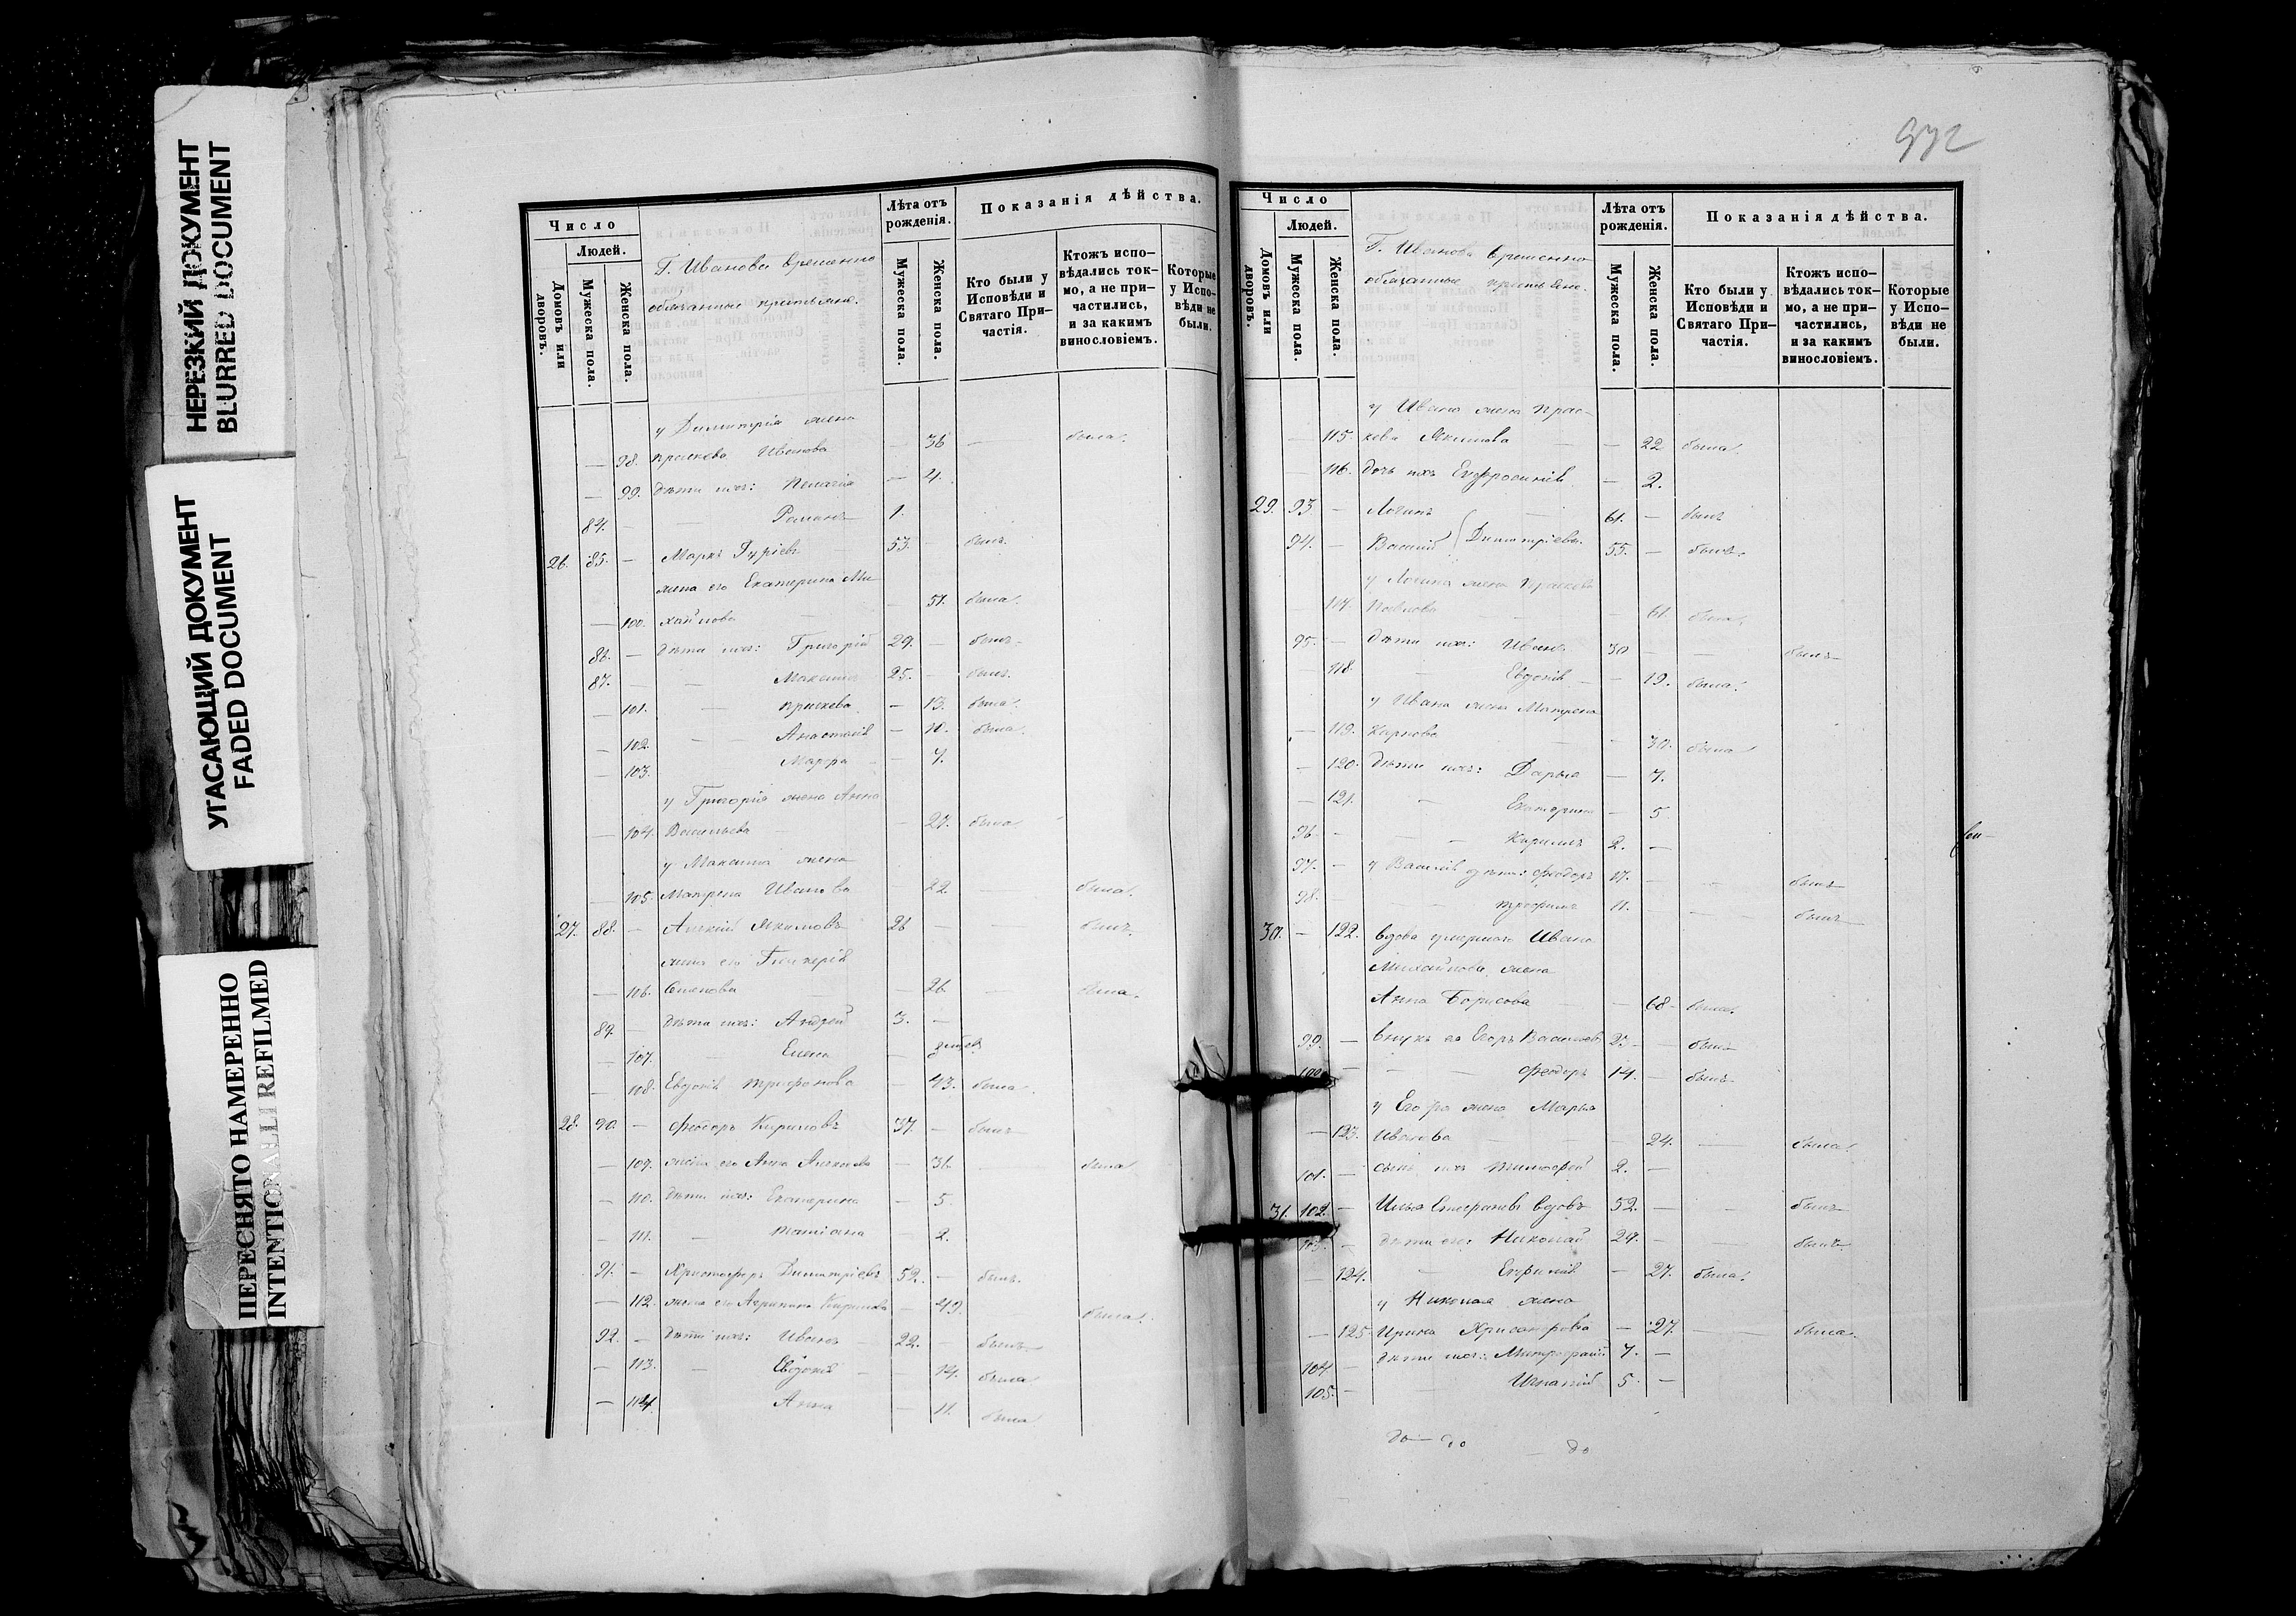 НЕРЕЗКИЙ ДОКУМЕНТ
BLURRED DOCUMENT
УГАСАЮЩИЙ ДОКУМЕНТ
FADED DOCUMENT
ПЕРЕСНЯТО НАМЕРЕННО
INTENTIONALLI REFILMED
Число
Людей.
Домовъ или дворовъ.
Мужеска пола.
Женска пола.
Г. Иванова временно
обязанные крестьяне.
Лѣта отъ рожденія.
Мужеска пола.
Женска пола.
Показанія дѣйства.
Кто были у Исповѣди и Святаго Причастія.
Ктожъ исповѣдались токмо, а не причастились, и за какимъ винословіемъ.
Которые у Исповѣди не были.
у Димитрія жена
— 98. Праскева Иванова — 36 — была.
— 99. дѣти ихъ: Пелагія — 4.
84. — Романъ 1.
26. 85. — Маркъ Гуріевъ 53. — былъ.
жена его Екатерина Ми-
— 100. хайлова — 51. была.
86. — дѣти ихъ: Григорій 29. — былъ.
87. — Максимъ 25. — былъ.
— 101. — Праскева — 13. была.
— 102. — Анастасія — 10. была.
— 103. Марфа — 7.
у Григорія жена Анна
— 104. Васильева — 27. была
у Максима жена
— 105. Матрена Иванова — 22. — была.
27. 88. — Алексій Якимовъ 26 — — былъ.
жена его Гликерія
— 106. Семенова — 26 — была.
89. — дѣти ихъ: Андрей 3. —
— 107. Елена —
— 108. Евдокія Трифонова — 43. была.
28. 90. — Феодоръ Кириловъ 37. — былъ
— 109. жена его Анна — 36. — была
— 110. дѣти ихъ: Екатерина — 5.
— 111. — Татіана — 2.
91. — Христофоръ Димитріевъ 52. — былъ.
— 112. жена его Агрипина Кирилова — 49. была.
92. — дѣти ихъ: Иванъ 22. — былъ
— 113. — Евдокія — 14. была.
— 114. Анна — 11. была.
972
Число
Людей.
Домовъ или дворовъ.
Мужеска пола.
Женска пола.
Г. Иванова временно
обязанные крестьяне.
Лѣта отъ рожденія.
Мужеска пола.
Женска пола.
Показанія дѣйства.
Кто были у Исповѣди и Святаго Причастія.
Ктожъ исповѣдались токмо, а не причастились, и за какимъ винословіемъ.
Которые у Исповѣди не были.
у Ивана жена Прас-
— 115. кева Якимова — 22 была.
— 116. дочь ихъ Евфросинія — 2.
29. 93. — Логинъ 61. — былъ
94. — Василій } Димитріевы 55. — былъ.
у Логина жена Праскева
— 117. Павлова — 61. была.
95. — дѣти ихъ: Иванъ 30 — — былъ
— 118. — Евдокія — 19. была.
у Ивана жена Матрена
— 119. Карпова — 30. была
— 120. дѣти ихъ: Дарья — 7.
— 121. — Екатерина — 5
96. — — Кирилъ 2. —
97. — у Василія дѣти: Феодоръ 17. — — былъ
98. Трофимъ 11. — былъ
30. — 122. вдова умершаго Ивана
Михайлова жена
Анна Борисова — 68. была.
99. — внукъ ея Егоръ Васильевъ 23 — былъ
100. — — Феодоръ 14. — былъ
у Егора жена Марья
— 123. Иванова — 24. — была.
101. — сынъ ихъ Тимофей 2. —
31. 102. — Илья Стефановъ вдовъ 52. — — былъ
103. — дѣти его: Николай 29. — — былъ
— 124. — Евфимія — 27. была.
у Николая жена
— 125. Ирина Хрисанфова — 27. — была.
104. — дѣти ихъ: Митрофаній 7. —
105. — — Игнатій 5 —